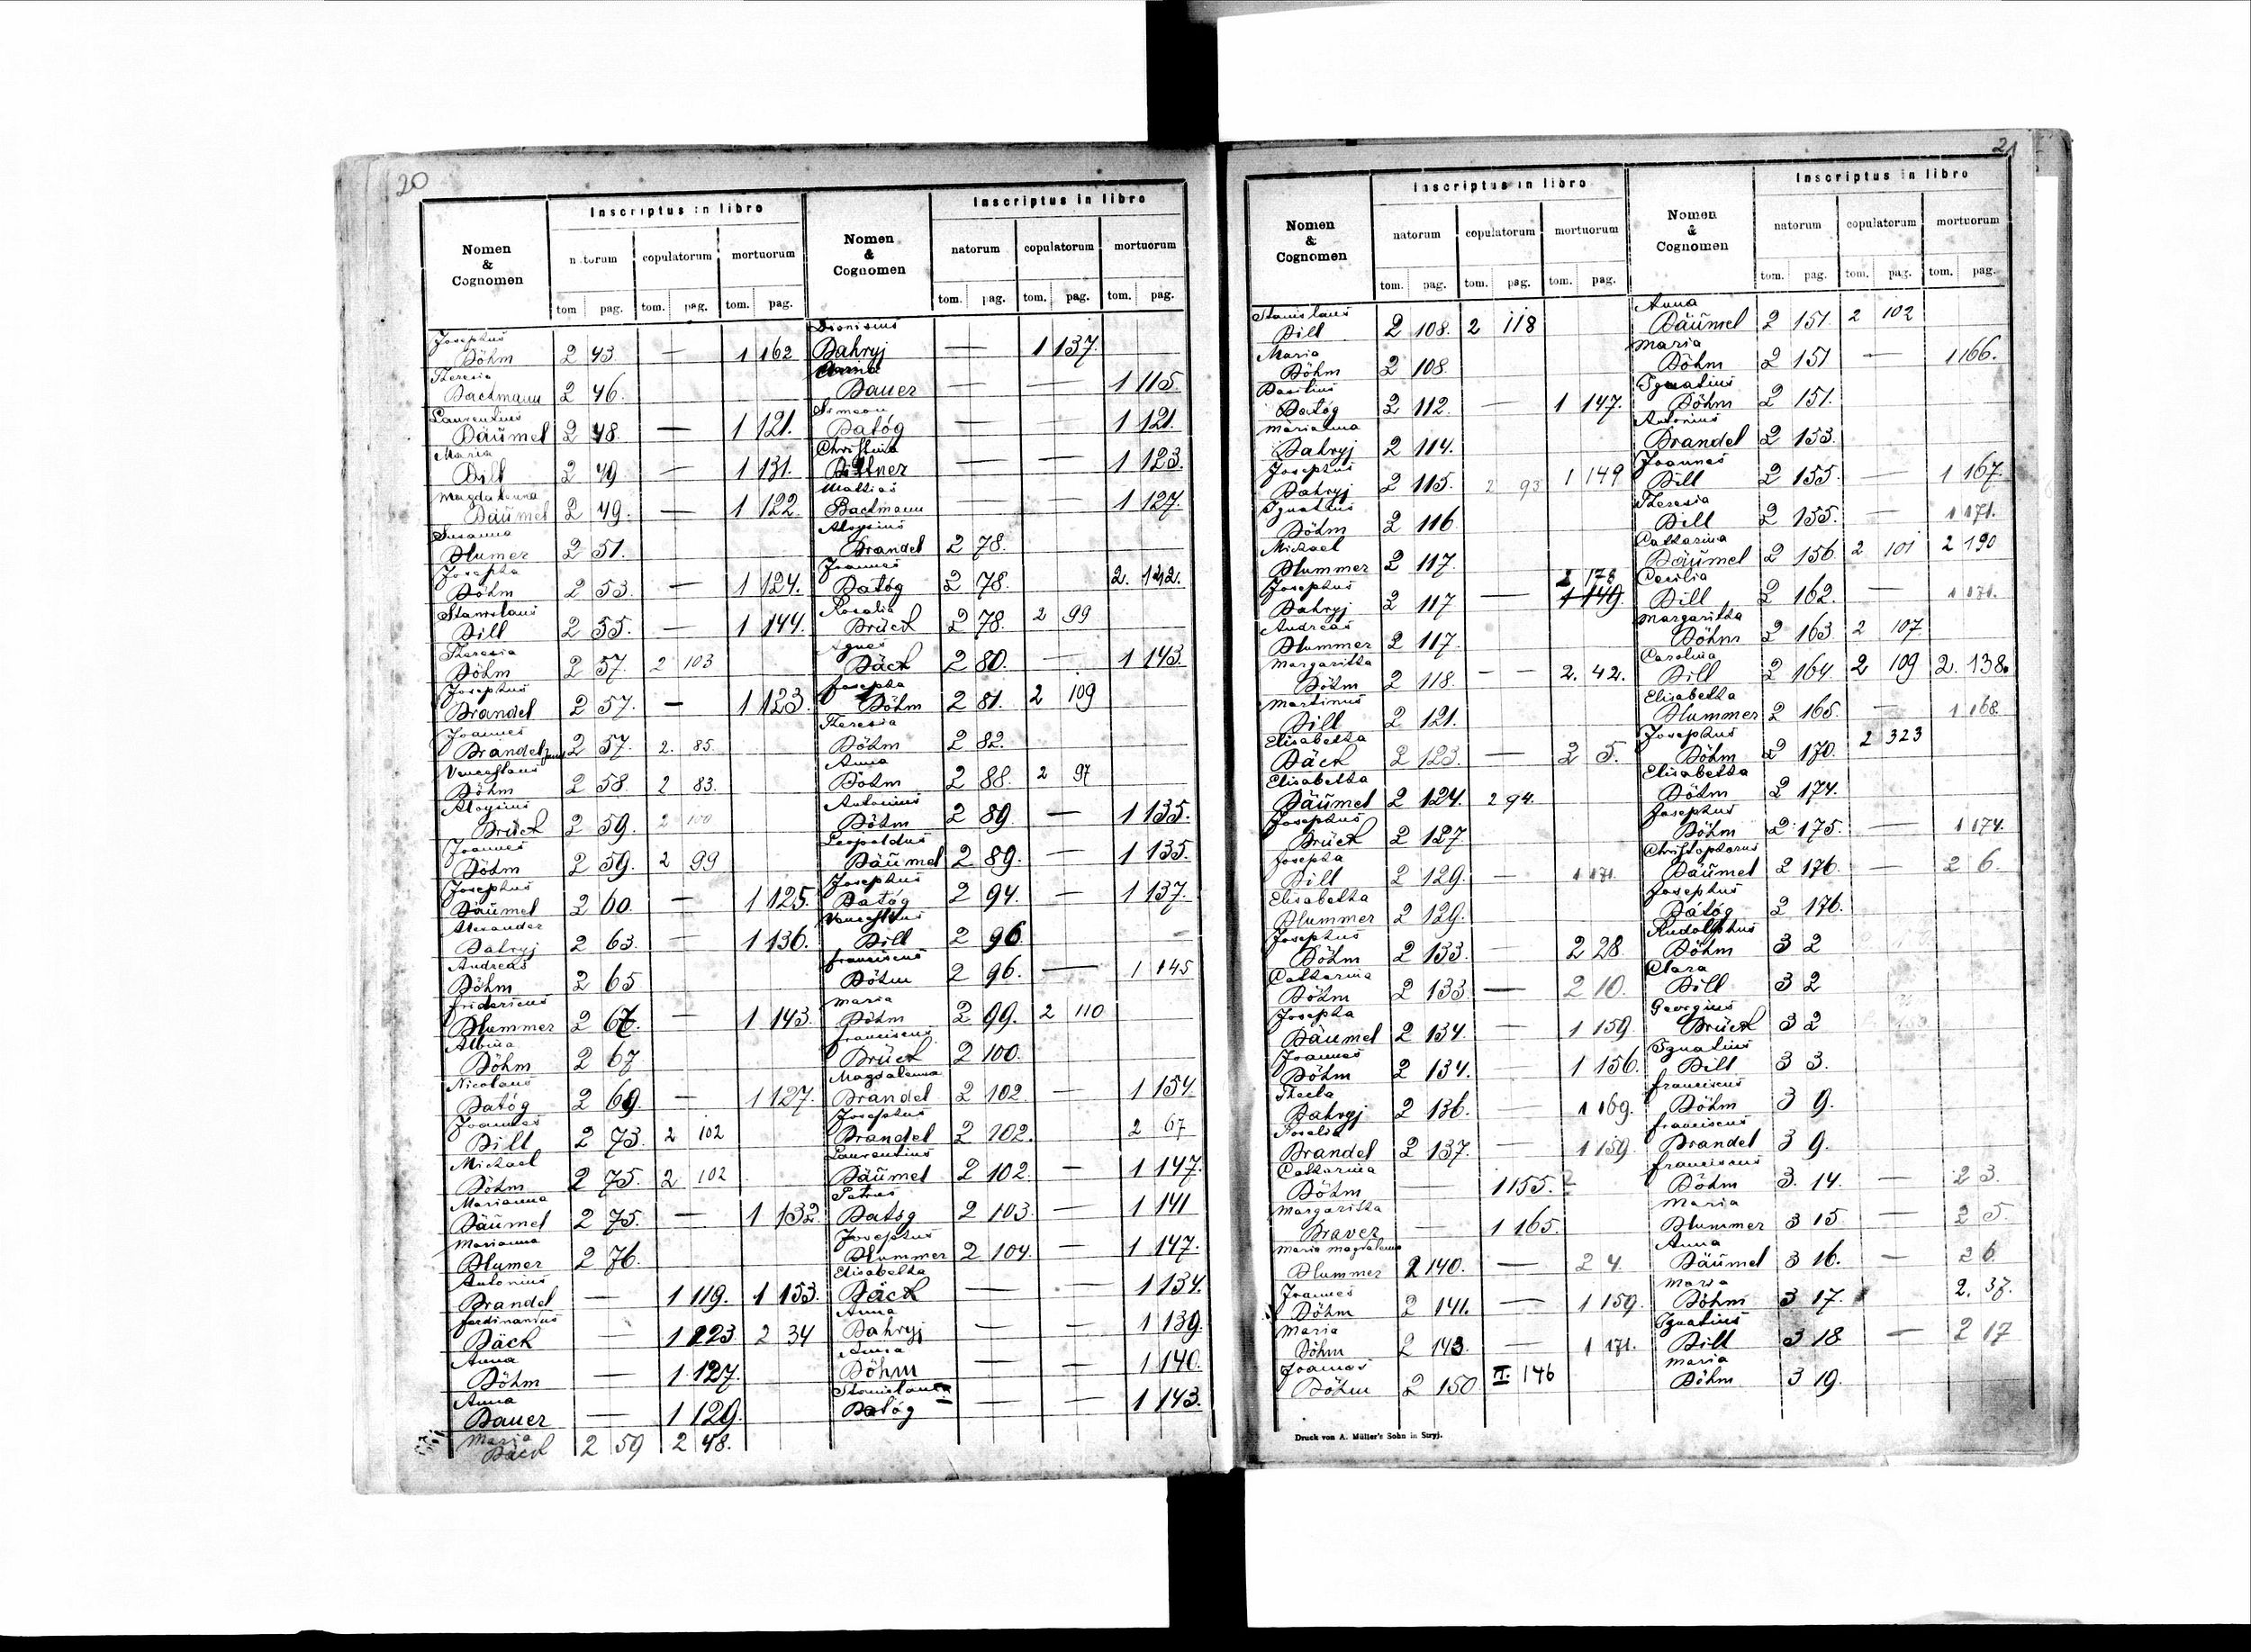 20
Nomen & Cognomen
Inscriptus in libro
natorum copulatorum mortuorum
tom pag. tom. pag. tom. pag.
Josephus
Böhm 2 43. — 1 162
Theresia
Bachmann 2 46.
Laurentius
Bäumel 2 48. — 1 121.
Maria
Bill 2 49 — 1 131.
Magdalenna
Bäumel 2 49. — 1 122
Susanna
Blumer 2 51.
Josepha
Böhm 2 53. — 1 124.
Stanislaus
Bill 2 55. — 1 144.
Theresia
Böhm 2 57. 2 103
Josephus
Brandel 2 57. — 1 123.
Joannes
Brandel 2 57. 2. 85.
Venceslaus
Böhm 2 58. 2 83.
Aloysius
Brück 2 59. 2 100
Joannes
Böhm 2 59. 2 99
Josephus
Bäumel 2 60. — 1 125.
Alexander
Bahryj 2 63. — 1 136.
Andreas
Böhm 2 65
Fridericus
Blummer 2 67. — 1 143.
Albina
Böhm 2 67
Nicolaus
Batóg 2 69 — 1 127.
Joannes
Bill 2 73. 2 102
Michael
Böhm 2 75. 2 102
Marianna
Bäumel 2 75. — 1 132.
Marianna
Blumer 2 76.
Antonius
Brandel — 1 119. 1 153.
Ferdinandus
Bäck — 1 123. 2 34
Anna
Böhm — 1 127.
Anna
Bauer — 1 129.
Maria
Bäck 2 59 2 48.
Nomen & Cognomen
Inscriptus in libro
natorum copulatorum mortuorum
tom. pag. tom. pag. tom. pag.
Dionisius
Bahryj — 1 137.
Anna
Bauer — — 1 115.
Simeon
Batóg — — 1 121.
Christina
Bittner — — 1 123.
Mattias
Bachmann — — 1 127.
Aloysius
Brandel 2 78.
Joannes
Batóg 2 78. 2. 142.
Rosalia
Brück 2 78. 2 99
Agnes
Bäck 2 80. — 1 143.
Josepha
Böhm 2 81. 2 109
Theresia
Böhm 2 82.
Anna
Böhm 2 88. 2 97
Antonius
Böhm 2 89. — 1 135.
Leopoldus
Bäumel 2 89. — 1 135.
Josephus
Batóg 2 94. — 1 137.
Venceslaus
Bill 2 96.
Franciscus
Böhm 2 96. — 1 145
Maria
Böhm 2 99. 2 110
Franciscus
Brück 2 100.
Magdalenna
Brandel 2 102. — 1 154.
Josephus
Brandel 2 102. 2 67
Laurentius
Bäumel 2 102. — 1 147.
Petrus
Batóg 2 103. — 1 141
Josephus
Blummer 2 104. — 1 147.
Elisabetha
Bäck — — 1 134.
Anna
Bahryj — — 1 139.
Anna
Böhm — — 1 140.
Stanislaus
Batóg — — 1 143.
21
Nomen & Cognomen
Inscriptus in libro
natorum copulatorum mortuorum
tom. pag. tom. pag. tom. pag.
Stanislaus
Bill 2 108. 2 118
Maria
Böhm 2 108.
Basilius
Batóg 2 112. — 1 147.
Marianna
Bahryj 2 114.
Josephus
Bahryj 2 115. 2 93 1 149
Ignatius
Böhm 2 116.
Michael
Blummer 2 117.
Josephus
Bahryj 2 117 — 1 149.
Andreas
Blummer 2 117.
Margaritha
Böhm 2 118. — 2. 42.
Martinus
Bill 2 121.
Elisabetha
Bäck 2 123. — 2 5.
Elisabetha
Bäumel 2 124. 2 94.
Josephus
Brück 2 127.
Josepha
Bill 2 129. — 1 171.
Elisabetha
Blummer 2 129.
Josephus
Böhm 2 133. — 2 28.
Catharina
Böhm 2 133. — 2 10.
Josepha
Bäumel 2 134. — 1 159.
Joannes
Böhm 2 134. — 1 156.
Thecla
Bahryj 2 136. — 1 169.
Rosalia
Brandel 2 137. — 1 159.
Catharina
Böhm — 1 155.
Margaritha
Braver — 1 165.
Maria Magdalenna
Blummer 2 140. — 2 4.
Joannes
Böhm 2 141. — 1 159.
Maria
Böhm 2 143. — 1 171.
Joannes
Böhm 2 150 II. 146
Nomen & Cognomen
Inscriptus in libro
natorum copulatorum mortuorum
tom. pag. tom. pag. tom. pag.
Anna
Bäumel 2 151. 2 102
Maria
Böhm 2 151 — 1 166.
Ignatius
Böhm 2 151.
Antonius
Brandel 2 153.
Joannes
Bill 2 155. — 1 167.
Theresia
Bill 2 155. — 1 171.
Catharina
Bäumel 2 156 2 101 2 190
Cecilia
Bill 2 162. — 1 171.
Margaritha
Böhm 2 163. 2 107
Carolina
Bill 2 164. 2 109 2. 138.
Elisabetha
Blummer 2 165. — 1 168.
Josephus
Böhm 2 170. 2 323
Elisabetha
Böhm 2 174.
Josephus
Böhm 2 175. — 1 174.
Christophorus
Bäumel 2 176. — 2 6.
Josephus
Batóg 2 176.
Rudolphus
Böhm 3 2
Clara
Bill 3 2
Georgius
Brück 3 2
Ignatius
Bill 3 3.
Franciscus
Böhm 3 9.
Franciscus
Brandel 3 9.
Franciscus
Böhm 3. 14. — 2 3.
Maria
Blummer 3 15 — 2 5.
Anna
Bäumel 3 16. — 2 6.
Maria
Böhm 3 17. 2. 37.
Ignatius
Bill 3 18 — 2 17
Maria
Böhm 3 19.
Druck von A. Müller's Sohn in Stryj.